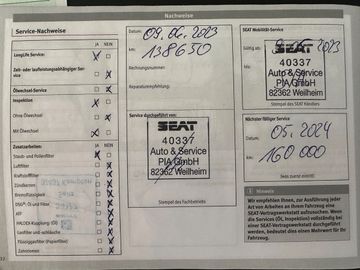 Nachweise
Service-Nachweise
JA NEIN
LongLife Service:
Zeit- oder laufleistungsabhängiger Service:
Ölwechsel-Service
Inspektion
Ohne Ölwechsel
Mit Ölwechsel
Zusatzarbeiten:
JA NEIN
Staub- und Pollenfilter
Luftfilter
Kraftstofffilter
Zündkerzen
Bremsflüssigkeit
ATF
HALDEX-Kupplung (Öl)
Zahnriemen
Datum:
09.06.2023
km:
138650
Rechnungsnummer:
Reparaturempfehlung:
Service durchgeführt von:
SEAT
40337
Auto & Service
PIA GmbH
82362 Weilheim
Stempel des Fachbetriebs
SEAT Mobilitäts-Service
Gültig ab:
SEAT
40337
Auto & Service
PIA GmbH
82362 Weilheim
Stempel des SEAT Händlers
Nächster fälliger Service
Datum:
05.2024
km:
160 000
(was zuerst eintritt)
Hinweis
Wir empfehlen Ihnen, zur Ausführung jeder
Art von Arbeiten an Ihrem Fahrzeug eine
SEAT-Vertragswerkstatt aufzusuchen. Wenn die
Services (Öl, Inspektion) vollständig bei einer
SEAT-Vertragswerkstatt durchgeführt werden,
bedeutet dies einen Mehrwert für Ihr
Fahrzeug.